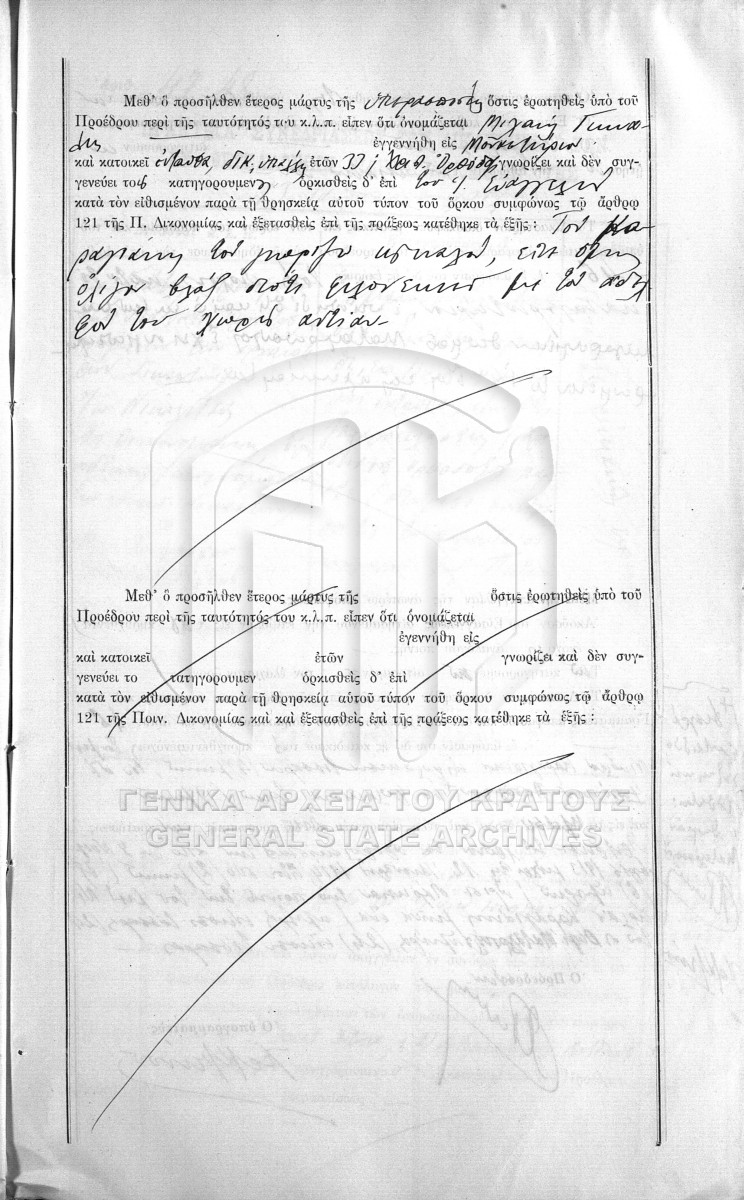 Μεθ' ὃ προσῆλθεν ἕτερος μάρτυς τῆς ὑπερασπίσεως ὅστις ἐρωτηθεὶς ὑπὸ τοῦ
Προέδρου περὶ τῆς ταυτότητός του κ.λ.π. εἶπεν ὅτι ὀνομάζεται Μιχαὴλ
ἐγεννήθη εἰς
καὶ κατοικεῖ ἐνταῦθα, ἐτῶν 33, Χριστ. Ὀρθόδοξος γνωρίζει καὶ δὲν συγ-
γενεύει το κατηγορουμεν ὁρκισθεὶς δ' ἐπὶ τοῦ Ἱ. Εὐαγγελίου
κατὰ τὸν εἰθισμένον παρὰ τῇ θρησκείᾳ αὐτοῦ τύπον τοῦ ὅρκου συμφώνως τῷ ἄρθρῳ
121 τῆς Π. Δικονομίας καὶ ἐξετασθεὶς ἐπὶ τῆς πράξεως κατέθηκε τὰ ἑξῆς : Τὸν Κα-
ραγιάννη τὸν γνωρίζω καλὰ, εἶναι
ὀλίγον βλὰξ διότι ἐφιλονεικοῦσε μὲ τὸν ἀδελ
φόν του χωρὶς αἰτίαν
Μεθ' ὃ προσῆλθεν ἕτερος μάρτυς τῆς ὅστις ἐρωτηθεὶς ὑπὸ τοῦ
Προέδρου περὶ τῆς ταυτότητός του κ.λ.π. εἶπεν ὅτι ὀνομάζεται
ἐγεννήθη εἰς
καὶ κατοικεῖ ἐτῶν γνωρίζει καὶ δὲν συγ-
γενεύει το τατηγορουμεν ὁρκισθεὶς δ' ἐπὶ
κατὰ τὸν εἰθισμένον παρὰ τῇ θρησκείᾳ αὐτοῦ τύπον τοῦ ὅρκου συμφώνως τῷ ἄρθρῳ
121 τῆς Ποιν. Δικονομίας καὶ καὶ ἐξετασθεὶς ἐπὶ τῆς πράξεως κατέθηκε τὰ ἑξῆς :
ΓΕΝΙΚΑ ΑΡΧΕΙΑ ΤΟΥ ΚΡΑΤΟΥΣ
GENERAL STATE ARCHIVES